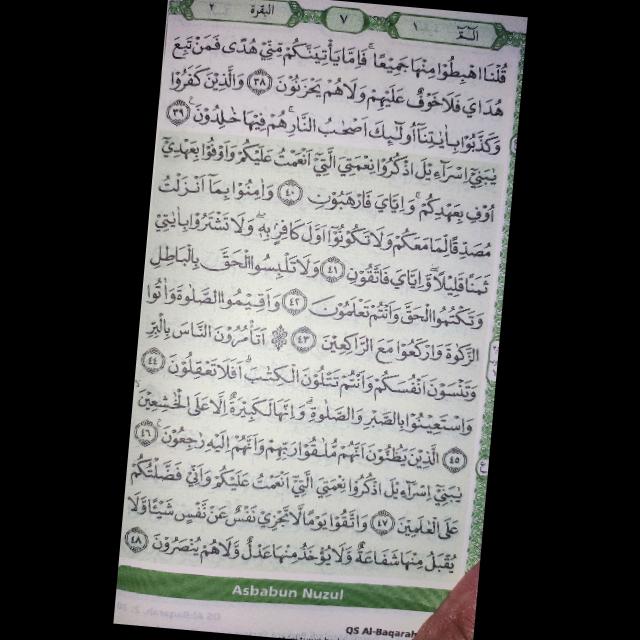 البقرة ٢
٧
الٓمّٓ ١
قُلْنَا اهْبِطُوْا مِنْهَا جَمِيْعًا ۚ فَاِمَّا يَأْتِيَنَّكُمْ مِّنِّيْ هُدًى فَمَنْ تَبِعَ
هُدَايَ فَلَا خَوْفٌ عَلَيْهِمْ وَلَا هُمْ يَحْزَنُوْنَ ٣٨ وَالَّذِيْنَ كَفَرُوْا
وَكَذَّبُوْا بِاٰيٰتِنَآ اُولٰۤىِٕكَ اَصْحٰبُ النَّارِ ۚ هُمْ فِيْهَا خٰلِدُوْنَ ٣٩
يٰبَنِيْٓ اِسْرَاۤءِيْلَ اذْكُرُوْا نِعْمَتِيَ الَّتِيْٓ اَنْعَمْتُ عَلَيْكُمْ وَاَوْفُوْا بِعَهْدِيْٓ
اُوْفِ بِعَهْدِكُمْ ۚ وَاِيَّايَ فَارْهَبُوْنِ ٤٠ وَاٰمِنُوْا بِمَآ اَنْزَلْتُ
مُصَدِّقًا لِّمَا مَعَكُمْ وَلَا تَكُوْنُوْٓا اَوَّلَ كَافِرٍۢ بِهٖ ۖ وَلَا تَشْتَرُوْا بِاٰيٰتِيْ
ثَمَنًا قَلِيْلًا ۖ وَّاِيَّايَ فَاتَّقُوْنِ ٤١ وَلَا تَلْبِسُوا الْحَقَّ بِالْبَاطِلِ
وَتَكْتُمُوا الْحَقَّ وَاَنْتُمْ تَعْلَمُوْنَ ٤٢ وَاَقِيْمُوا الصَّلٰوةَ وَاٰتُوا
الزَّكٰوةَ وَارْكَعُوْا مَعَ الرَّاكِعِيْنَ ٤٣ ۞ اَتَأْمُرُوْنَ النَّاسَ بِالْبِرِّ
وَتَنْسَوْنَ اَنْفُسَكُمْ وَاَنْتُمْ تَتْلُوْنَ الْكِتٰبَ ۗ اَفَلَا تَعْقِلُوْنَ ٤٤
وَاسْتَعِيْنُوْا بِالصَّبْرِ وَالصَّلٰوةِ ۗ وَاِنَّهَا لَكَبِيْرَةٌ اِلَّا عَلَى الْخٰشِعِيْنَ
٤٥ الَّذِيْنَ يَظُنُّوْنَ اَنَّهُمْ مُّلٰقُوْا رَبِّهِمْ وَاَنَّهُمْ اِلَيْهِ رٰجِعُوْنَ ٤٦
يٰبَنِيْٓ اِسْرَاۤءِيْلَ اذْكُرُوْا نِعْمَتِيَ الَّتِيْٓ اَنْعَمْتُ عَلَيْكُمْ وَاَنِّيْ فَضَّلْتُكُمْ
عَلَى الْعٰلَمِيْنَ ٤٧ وَاتَّقُوْا يَوْمًا لَّا تَجْزِيْ نَفْسٌ عَنْ نَّفْسٍ شَيْـًٔا وَّلَا
يُقْبَلُ مِنْهَا شَفَاعَةٌ وَّلَا يُؤْخَذُ مِنْهَا عَدْلٌ وَّلَا هُمْ يُنْصَرُوْنَ ٤٨
Asbabun Nuzul
QS Al-Baqarah